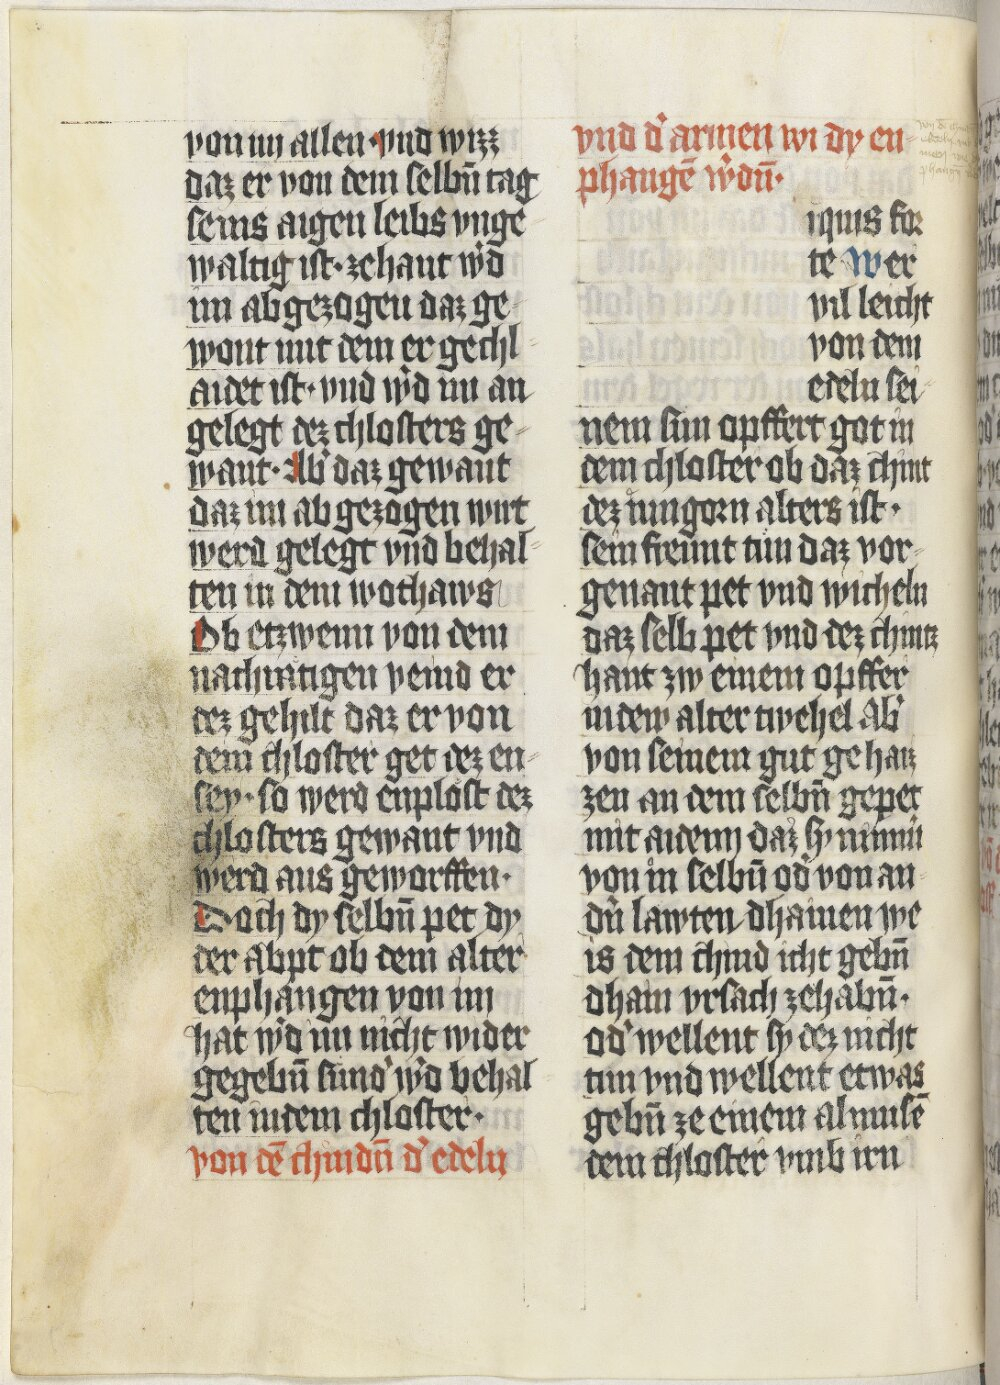 von im allen · vnd wizz
daz er von dem selbn̄ tag
seins aigen leibs vnge-
waltig ist · zehant wͤd
im abgezogen daz ge-
wont mit dem er gechl-
aidet ist · vnd wͤd im an
gelegt dez chlosters ge-
want · Ab daz gewant
daz im abgezogen wirt
werd gelegt vnd behal-
ten in dem wothaws
Ob etzwenn von dem
nachratigen veind er
dez gehilt daz er von
dem chloster get dez en-
sey · so werd enplost dez
chlosters gewant vnd
werd aus geworffen ·
Doch dy selbn̄ pet dy
der abpt ob dem alter
enphangen von im
hat wͤd im nicht wider
gegebn̄ sund' wͤd behal
ten in dem chloster ·
von dē chindn̄ d' edeln
vnd d' armen wi dy en-
phangē wͤdn̄ ·
iquis for
te Wer
vil leicht
von dem
edeln sei-
nem sun opffert got in
dem chloster ob daz chint
dez iungorn alters ist ·
sein freunt tun daz vor-
genant pet vnd wicheln
daz selb pet vnd dez chintz
hant zw einem opffer
in dew alter twehel Ab'
von seinem gut gehaiz
zen an dem selbn̄ gepet
mit aidenn daz sy nimm'
von in selbn̄ od' von an-
dn̄ lawten dhainen we
is dem chind icht gebn̄
dhain vrsach zehabn̄ ·
od' wellent sy dez nicht
tun vnd wellent etwas
gebn̄ ze einem almusē
dem chloster vmb irn